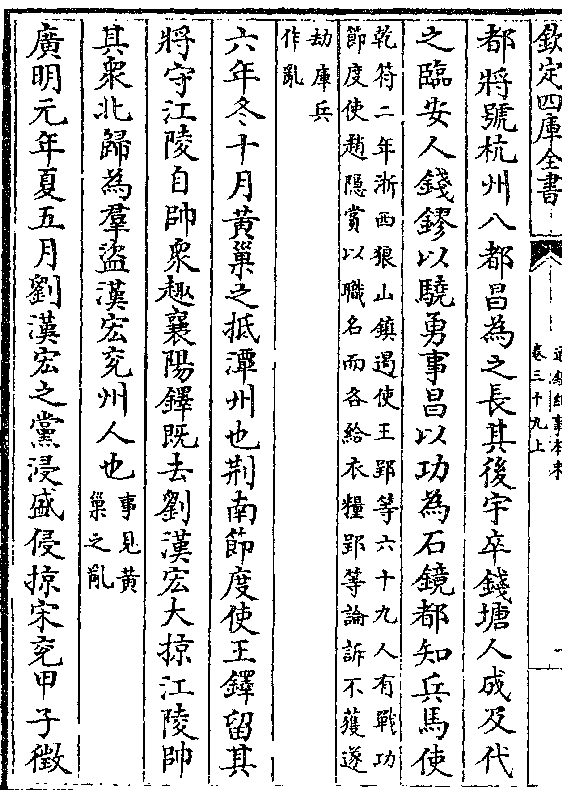 欽定四庫全書
通鑑紀事本末
卷三十九上
都將號杭州八都昌為之長其後宇卒錢塘人成及代
之臨安人錢鏐以驍勇事昌以功為石鏡都知兵馬使
乾符二年浙西狼山鎮遏使王郢等六十九人有戰功
節度使趙隱賞以職名而各給衣糧郢等論訴不獲遂
劫庫兵
作亂
六年冬十月黄巢之抵潭州也荆南節度使王鐸留其
將守江陵自帥衆趣襄陽鐸既去劉漢宏大掠江陵帥
其衆北歸為羣盜漢宏兖州人也
事見黄
巢之亂
廣明元年夏五月劉漢宏之黨浸盛侵掠宋兖甲子徵